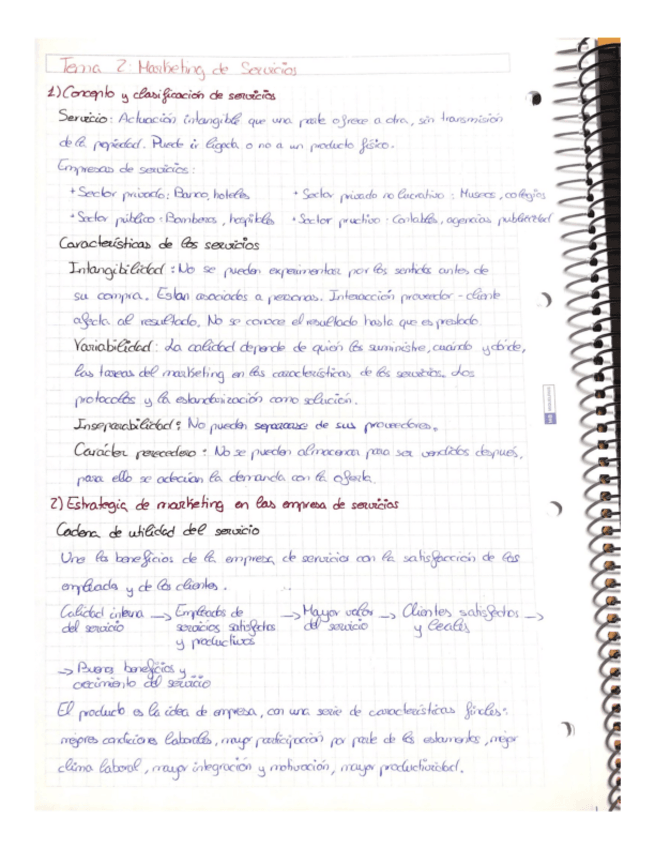 Tema 2: Marketing de Servicios
1) Concepto y clasificación de servicios
Servicio: Actuación intangible que una parte ofrece a otra, sin transmisión
de la propiedad. Puede ir ligada o no a un producto físico.
Empresas de servicios:
+ Sector privado: Banco, hoteles + Sector privado no lucrativo: Museos, colegios
+ Sector público: Bomberos, hospitales + Sector pructivo: Contables, agencias publicidad
Características de los servicios
Intangibilidad: No se pueden experimentar por los sentidos antes de
su compra. Estan asociados a personas. Interacción proveedor - cliente
afecta al resultado. No se conoce el resultado hasta que es prestado.
Variabilidad: La calidad depende de quién los suministre, cuándo y dónde,
las tareas del marketing en las características de los servicios. Los
protocolos y la estandarización como solución.
Inseparabilidad: No pueden separarse de sus proveedores.
Carácter perecedero: No se pueden almacenar para ser vendidos después,
para ello se adecúan la demanda con la oferta.
2) Estrategia de marketing en las empresa de servicios
Cadena de utilidad del servicio
Une los beneficios de la empresa de servicios con la satisfacción de los
empleados y de los clientes.
Calidad interna → Empleados de → Mayor valor → Clientes satisfechos →
del servicio servicios satisfechos del servicio y leales
y productivos
→ Buenos beneficios y
crecimiento del servicio
El producto es la idea de empresa, con una serie de características finales:
mejores condiciones laborales, mayor participación por parte de los estamentos, mejor
clima laboral, mayor integración y motivación, mayor productividad.